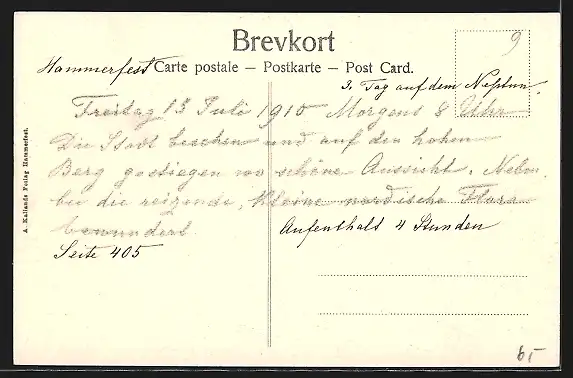 Brevkort
Hammerfest Carte postale – Postkarte – Post Card.
9
3. Tag auf dem Neptun.
Freitag 15 Juli 1910 Morgens 8 Uhr
Die Stadt besehen und auf den hohen
Berg gestiegen wo schöne Aussicht. Neben
bei die reizende, kleine nordische Flora
bewundert.
Aufenthalt 4 Stunden
Seite 405
A. Kallands Forlag Hammerfest.